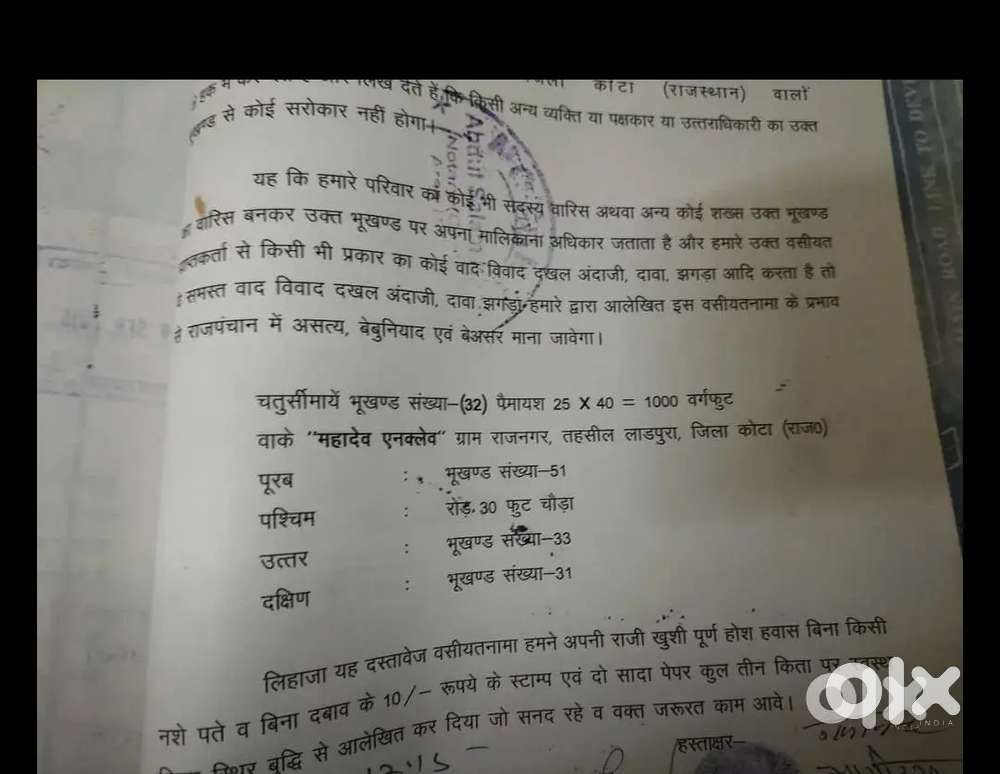 कोटा (राजस्थान) वालों
लिख देते हैं कि किसी अन्य व्यक्ति या पक्षकार या उत्तराधिकारी का उक्त
से कोई सरोकार नहीं होगा।
यह कि हमारे परिवार का कोई भी सदस्य वारिस अथवा अन्य कोई शख्स उक्त भूखण्ड
वारिस बनकर उक्त भूखण्ड पर अपना मालिकाना अधिकार जताता है और हमारे उक्त वसीयत
से किसी भी प्रकार का कोई वाद विवाद दखल अंदाजी, दावा, झगड़ा आदि करता है तो
समस्त वाद विवाद दखल अंदाजी, दावा झगड़ा हमारे द्वारा आलेखित इस वसीयतनामा के प्रभाव
से राजपंचान में असत्य, बेबुनियाद एवं बेअसर माना जावेगा।
चतुर्सीमायें भूखण्ड संख्या–(32) पैमायश 25 X 40 = 1000 वर्गफुट
वाके "महादेव एनक्लेव" ग्राम राजनगर, तहसील लाडपुरा, जिला कोटा (राज0)
पूरब : भूखण्ड संख्या–51
पश्चिम : रोड़ 30 फुट चौड़ा
उत्तर : भूखण्ड संख्या–33
दक्षिण : भूखण्ड संख्या–31
लिहाजा यह दस्तावेज वसीयतनामा हमने अपनी राजी खुशी पूर्ण होश हवास बिना किसी
नशे पते व बिना दबाव के 10/– रूपये के स्टाम्प एवं दो सादा पेपर कुल तीन किता पर
बुद्धि से आलेखित कर दिया जो सनद रहे व वक्त जरूरत काम आवे।
हस्ताक्षर–
olx
INDIA